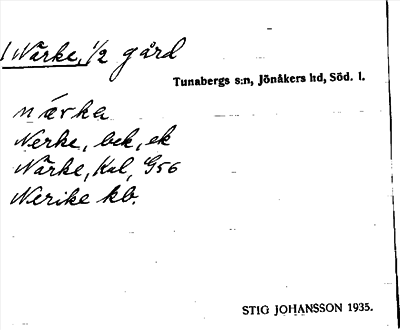 1 Närke, 1/2 gård
Tunabergs s:n, Jönåkers hd, Söd. l.
nærka
Nerke, bek, ek
Närke, Kal, G56
Nerike kb.
STIG JOHANSSON 1935.